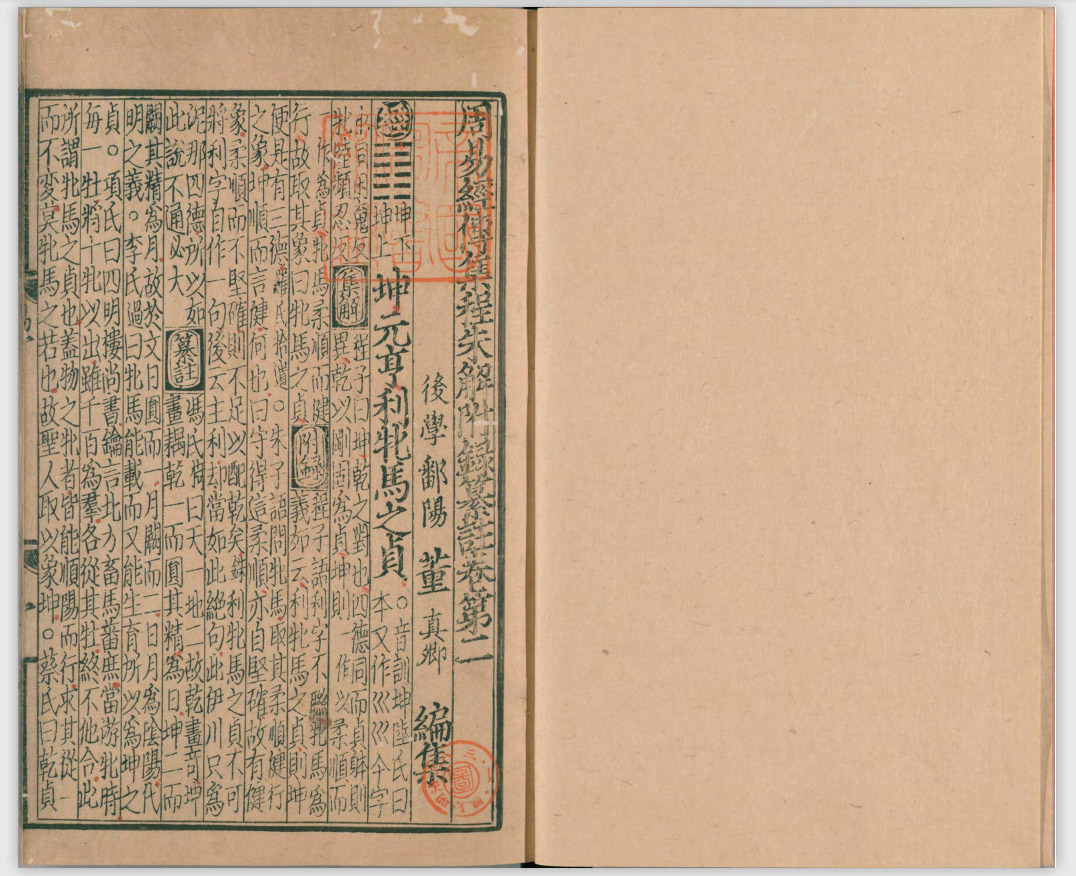 周易經傳集程朱解附録纂註卷第二
後學鄱陽 董 真卿 編集
經 ䷁ 坤下 坤上 坤元亨利牝馬之貞 。音訓坤陸氏曰
本又作巛巛今字
也同困反
牝陸頻忍反 集解 程子曰坤乾之對也四德同而貞軆則
異乾以剛固為貞坤則一作以柔順而
行一作為貞牝馬柔順而健
行故取其象曰牝馬之貞 附録 程子語利字不聯牝馬為
義如云利牝馬之貞則坤
便是有三德羅氏拾遺。朱子語問牝馬取其柔順健行
之象坤順而言健何也曰守得信柔順亦自堅確故有健
象柔順而不堅確則不足以配乾矣銖利牝馬之貞不可
將利字自作一句後云主利却當如此絶句此伊川只為
泥那四德所以如
此說不通必大 纂註 馮氏椅曰天一地二故乾畫竒坤
畫耦乾一而圓其精為日坤二而
闕其精為月故於文日圓而一月闕而二日月為陰陽代
明之義。李氏過曰牝馬能載而又能生育所以為坤之
貞。項氏曰四明樓尚書鑰言北方畜馬蕃庶當游牝時
每一牡將十牝以出雖千百為羣各從其牡終不他合此
所謂牝馬之貞也蓋物之牝者皆能順陽而行求其從一
而不變莫牝馬之若也故聖人取以象坤。蔡氏曰乾貞